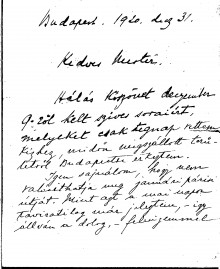 Budapest, 1920. aug 31.
Kedves Mester,
Hálás köszönet deczember
9-ről kelt szives soraiért,
melyeket csak tegnap vettem
kézhez, midőn megszállott terü-
letről Budapestre érkeztem.
Igen sajnálom, hogy nem
valósithatja meg januári párisi
útját. Mint azt a mai napon
táviratilag már jeleztem, - igy
állván a dolog, -